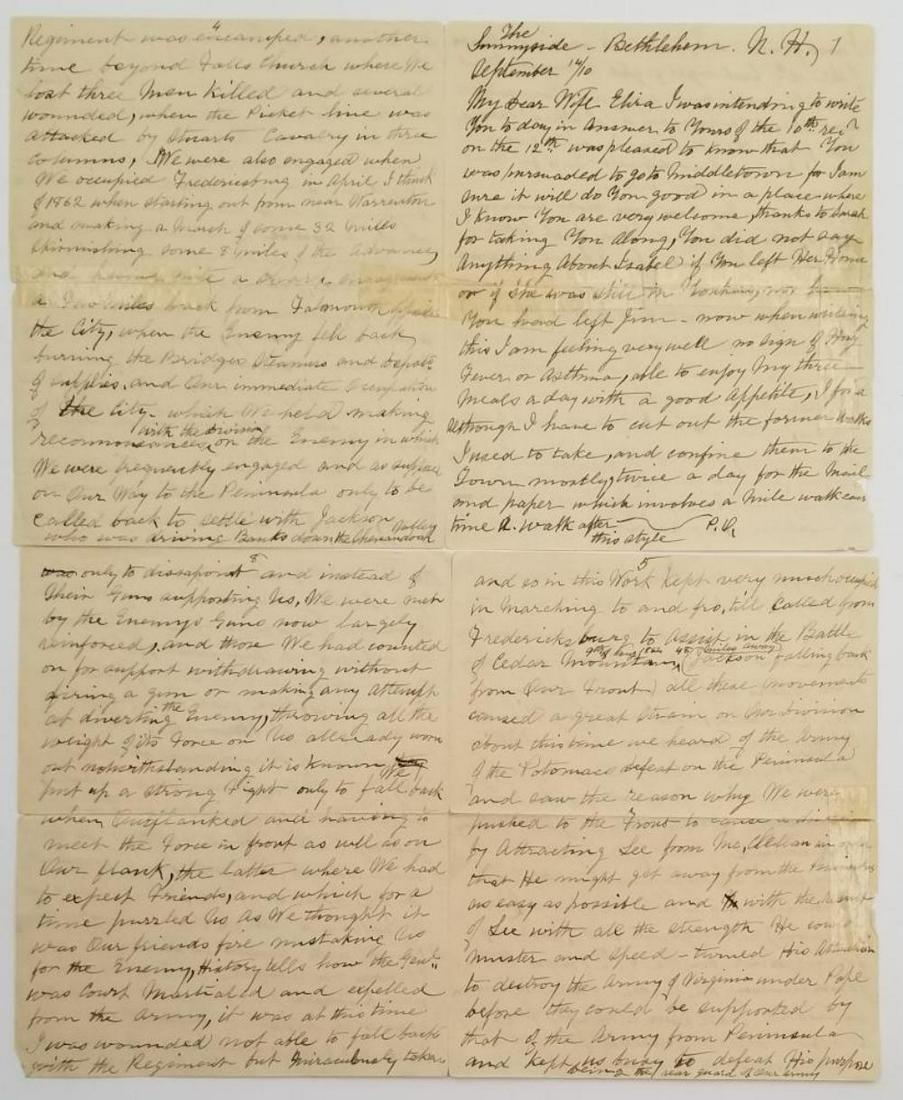 4
Regiment was encamped, another
time beyond Falls Church where We
lost three Men Killed and several
wounded, when the Picket line was
attacked by Stuarts Cavalry in three
columns, We were also engaged when
We occupied Fredericsburg in April I think
of 1862 when starting out from near Warrenton
and making a March of some 32 Miles
Skirmishing some 8 Miles of the Advance,
and having quite a
a Few Miles back from Falmouth
the City, when the Enemy fell back
burning the Bridges Steamers and Depots
of supplies, and Our immediate Occupation
of the City - which We held making
with the division
reconnonsances, on the Enemy in which
We were frequently engaged and as
on Our Way to the Peninsula only to be
called back to settle with Jackson
who was driving Banks down the Shenandoah Valley
The
Sunnyside - Bethlehem. N. H, 1
September 14/10
My Dear Wife Eliza I was intending to write
You to day in Answer to Yours of the 10th rec'd
on the 12th was pleased to know that You
was pursuaded to go to Middletown for I am
sure it will do You good in a place where
I know You are very welcome, thanks to Sarah
for taking You along, You did not say
Anything About Isabel if You left Her Home
or if She was still in Yonkers, nor
You head left Jim - now when writing
this I am feeling very well no sign of Hay
Fever or Asthma, able to enjoy My three
Meals a day with a good Appetite,
although I have to cut out the former Walks
I used to take, and confine them to the
Town mostly, twice a day for the Mail
and paper which involves a Mile walk each
time A. walk after P.O.
this style
8
was only to dissapoint and instead of
Their Guns supporting Us, We were met
by the Enemys Guns now largely
reinforced, and those We had counted
on for support withdrawing without
firing a gun or making any Attempt
at diverting the Enemy, throwing all the
weight of its Force on Us allready worn
out notwithstanding it is known We
put up a strong Fight only to fall back
when Outflanked and having to
meet the Force in front as well as on
Our flank, the latter where We had
to expect Friends, and which for a
time puzzled Us As We thought it
was Our friends fire mistaking Us
for the Enemy, History tells how the Genl
was Court Martialed and expelled
from the Army, it was at this time
I was wounded not able to fall back
with the Regiment but Miraculously taken
5
and so in this Work Kept very much occupied
in Marching to and fro, till Called from
Fredericksburg to Assist in the Battle
9th of Aug 1862 45 Miles away
of Cedar Mountain, (Jackson falling back
from Our Front) all these Movements
caused a great Strain on Our Division
about this time we heard of the Army
of the Potomacs defeat on the Peninsula
and saw the reason why We were
pushed to the Front to cause a
by Attracting Lee from Mc,Clelan in order
that He might get away from the Peninsula
as easy as possible and with the result
of Lee with all the strength He could
Muster and Speed - turned His Attention
to destroy the Army of Virginia under Pope
before they could be supported by
that of the Army from Peninsula
and Kept us busy to defeat His purpose
being the rear guard of Our Army